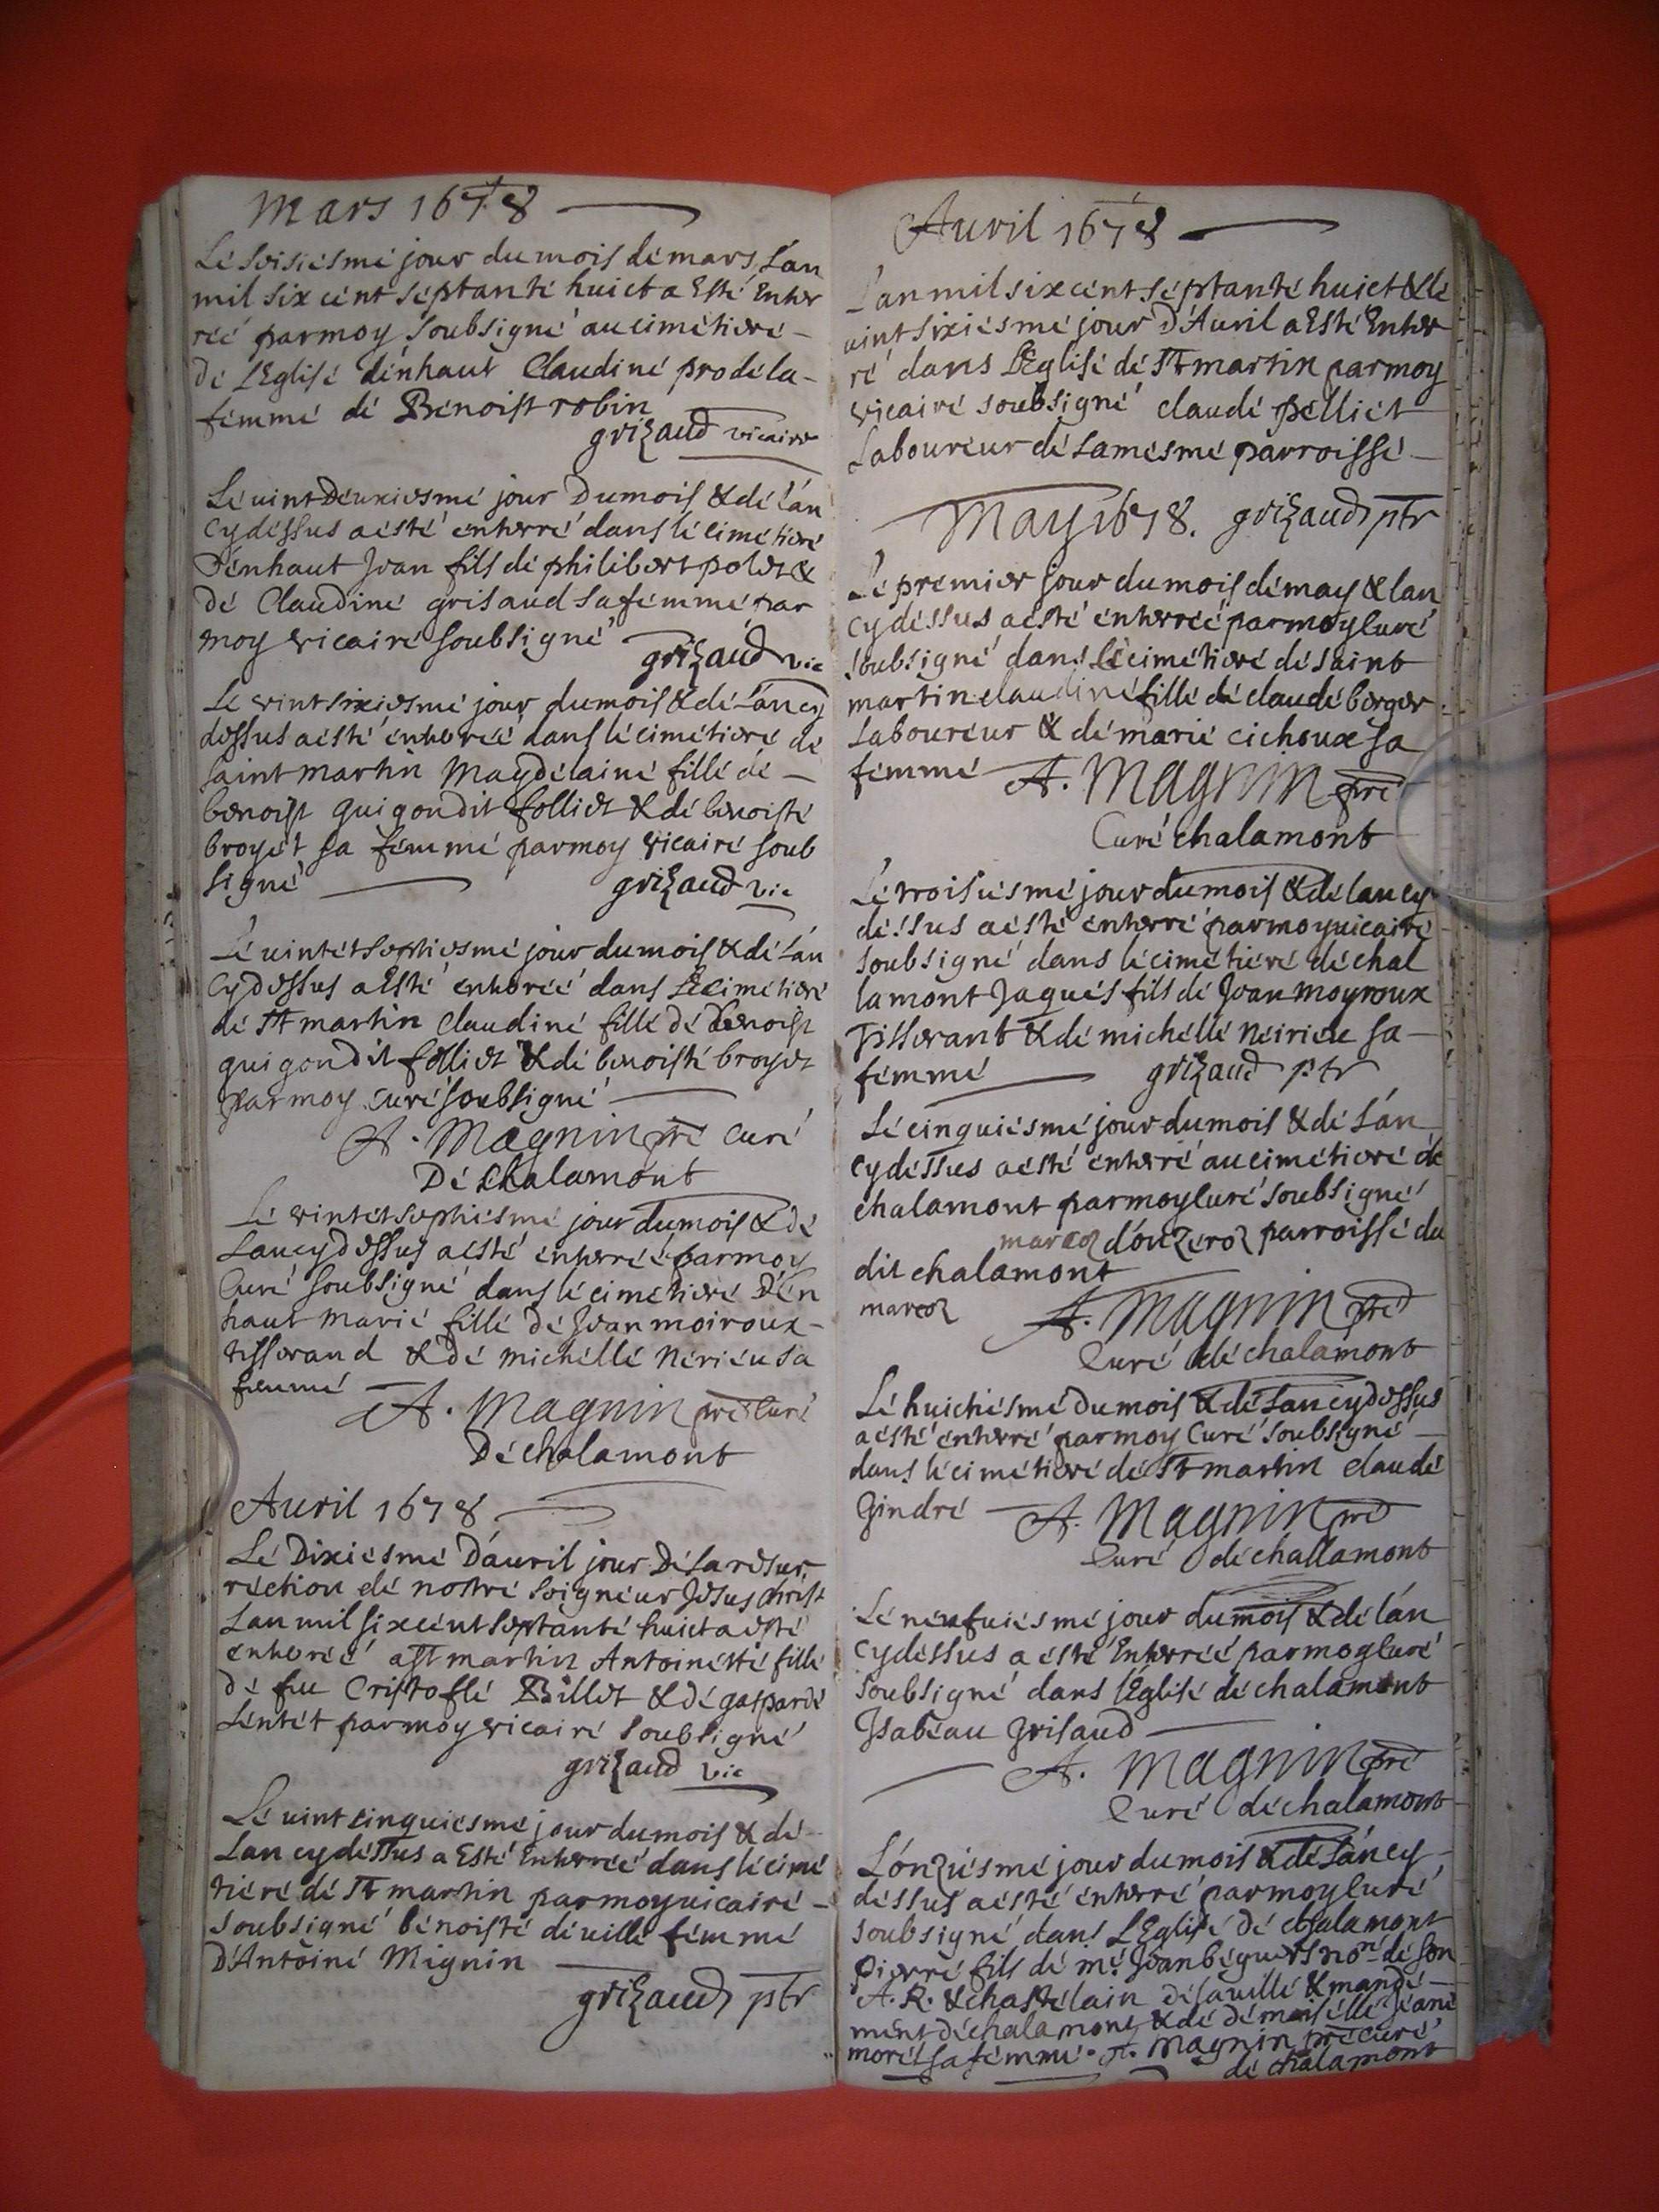 Mars 1678
Lé soisiésmé jour du mois dé mars l'an
mil six cént séptanté huict a Esté Enter
réé par moy soubsigné au cimétieré
dé L'Eglisé d'énhaut Claudiné prodéla
fémmé dé Benoist robin
grizaud vicaire
Lé vint deuxiesmé jour du mois & dé l'an
cy déssus a ésté enterré dans lé cimétieré
d'énhaut Jean fils dé philibert polet &
dé Claudiné grisaud sa fémmé par
moy vicairé soubsigné
grizaud vic
Le vint sixiesmé jour du mois & dé L'an cy
dessus a ésté énterréé dans lé cimétieré dé
saint martin Magdélainé fillé dé
benoist guigon dit folliet & dé benoisté
broyét sa fémmé par moy vicairé soub
signé
grizaud vic
Lé vintét septiesmé jour du mois & dé L'an
cy dessus a Esté enterréé dans Lé cimétieré
dé St martin Claudiné fillé dé benoist
guigon dit folliet & dé benoisté broyet
par moy curé soubsigné
A. Magnin pré curé
Dé chalamont
Lé vintét septiésmé jour du mois & dé
L'an cy dessus a ésté enterréé par moy
Curé soubsigné dans lé cimétieré D'én
haut Marié fillé dé Jean moiroux
tisserand & dé michéllé Nériéu sa
femmé
A. Magnin pré Curé
Dé chalamont
Auril 1678
Lé Dixiésmé D'auril jour Dé La résur
réction dé nostré seignéur Jésus christ
L'an mil six cént septanté huict a esté
enterréé a St martin Antoinétté fillé
dé feu Cristoflé Billet & dé gaspardé
Léntét par moy vicairé soubsigné
grizaud vic
Lé vint cinquiésmé jour du mois & dé
L'an cy déssus a Esté Enterréé dans lé cimé
tiéré dé St martin par moy vicairé
soubsigné bénoisté déuillé fémmé
D'Antoiné Mignin
grizaud ptr
Auril 1678
L'an mil six cént séptanté huict & lé
vint sixiésmé jour d'Auril a Esté Enter
ré dans L'Églisé dé St martin par moy
vicairé soubsigné claudé pélliét
Laboureur dé La mésmé parroissé
May 1678. grizaud ptr
Lé prémier jour du mois dé may & l'an
cy déssus a ésté énterréé par moy Curé
soubsigné dans lé cimétieré dé saint
martin claudiné fillé dé claudé berger
Laboureur & dé marié cichoux sa
fémmé
A. Magnin pré
Curé chalamont
Lé troisiésmé jour du mois & dé l'an cy
déssus a ésté énterré par moy vicairé
soubsigné dans lé cimétiéré dé chal
lamont Jaqués fils dé Jean moyroux
Tisserant & dé michéllé Néiriéu sa
fémmé
grizaud ptr
Lé cinquiésmé jour du mois & dé L'an
cy déssus a ésté énterré au cimétieré dé
chalamont par moy Curé soubsigné
marcoz d'onzéroz parroissé du
dit chalamont
marcoz
A. Magnin pré
Curé dé chalamont
Lé huictiésmé du mois & dé L'an cy dessus
a ésté énterré par moy Curé soubsigné
dans lé cimétieré dé St martin claudé
Gindré
A. Magnin pré
Curé dé challamont
Lé neufuiésmé jour du mois & dé l'an
cy déssus a ésté Enterréé par moy Curé
soubsigné dans l'Églisé dé chalamont
Isabéau Grisaud
A. Magnin pré
Curé dé chalamont
L'onziésmé jour du mois & dé L'an cy
déssus a ésté énterré par moy Curé
soubsigné dans L'Eglisé dé chalamont
pierré fils dé mé. Jean béguet no.ré dé son
A. R. & chastélain dé sa villé & mandé
mént dé chalamont & dé démoisélle Jéané
morél sa fémmé. A. Magnin pré curé
dé chalamont